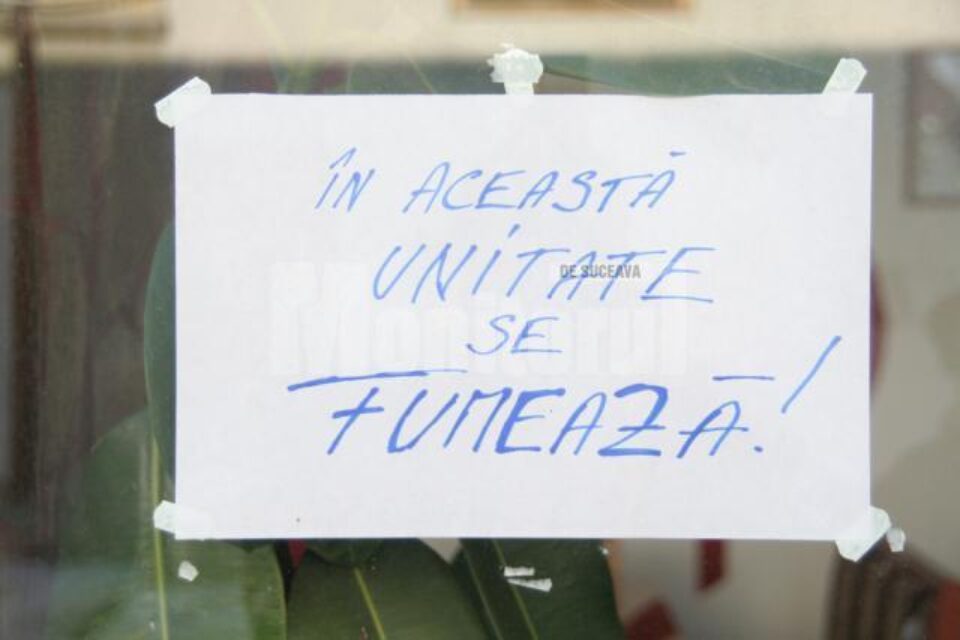 ÎN ACEASTĂ
UNITATE
DE SUCEAVA
Monitorul
SE
FUMEAZĂ!